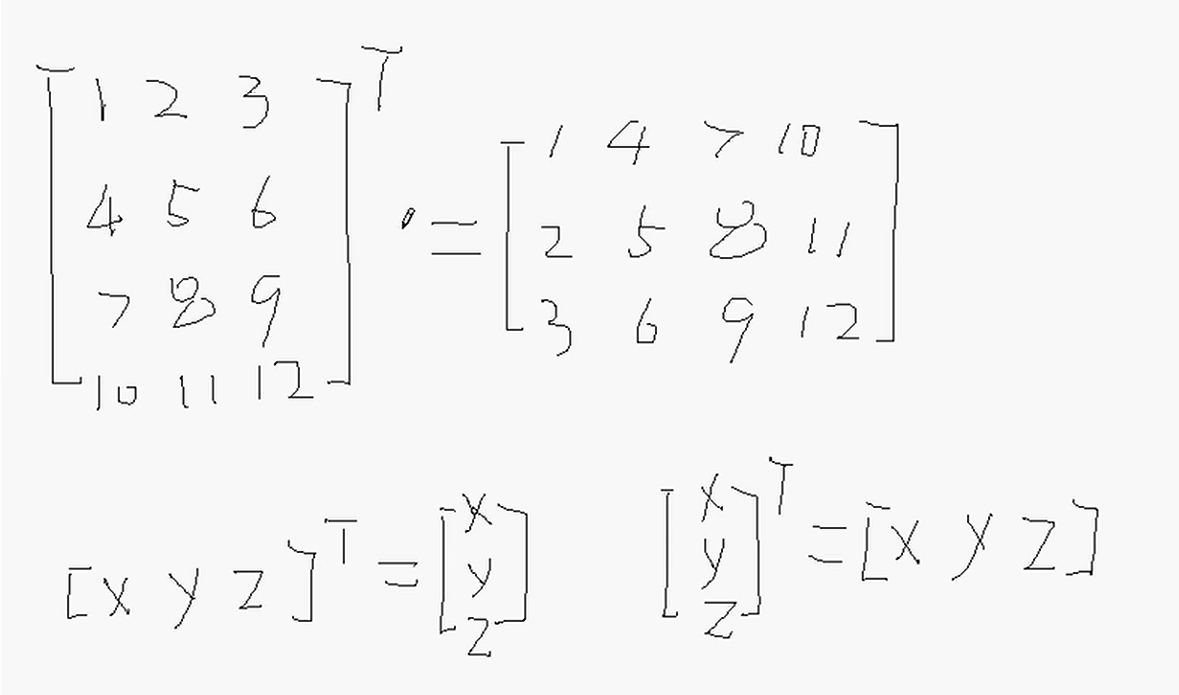 [1 2 3
4 5 6
7 8 9
10 11 12]ᵀ = [1 4 7 10
2 5 8 11
3 6 9 12]
[x y z]ᵀ = [x
y
z]
[x
y
z]ᵀ = [x y z]